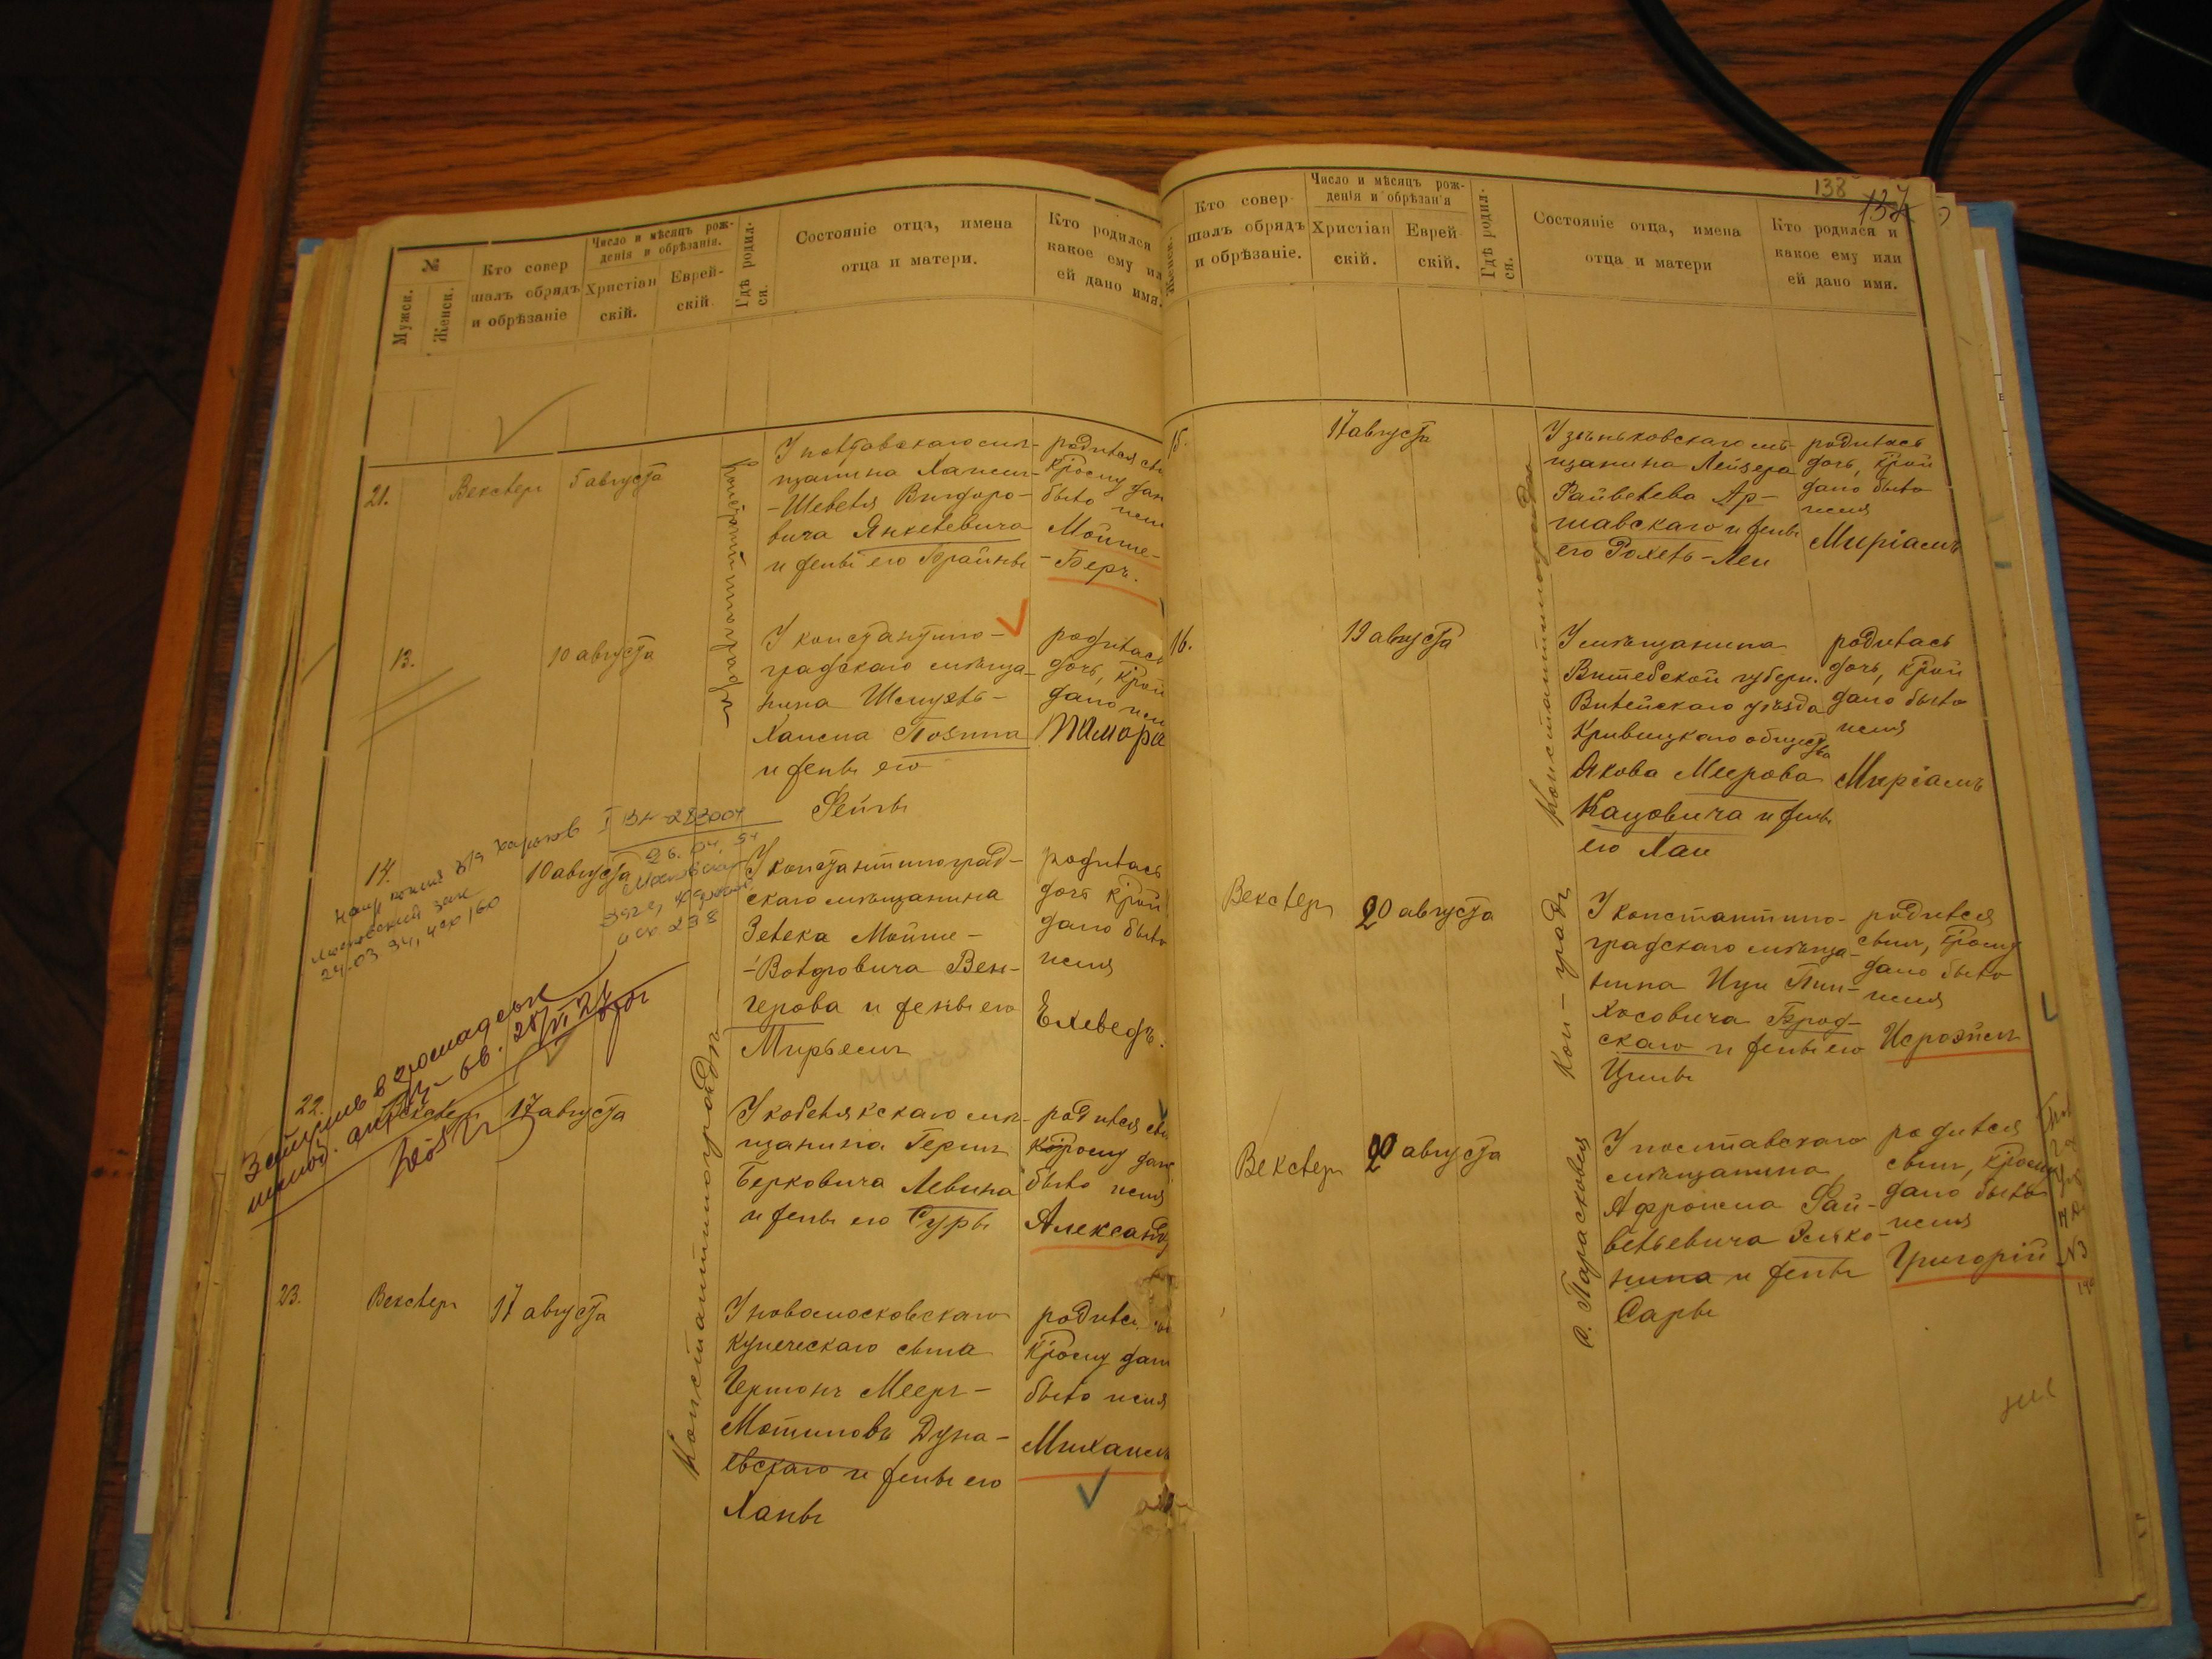 №
Мужск.
Женск.
Кто совер
шалъ обрядъ
и обрѣзаніе
Число и мѣсяцъ рож-
денія и обрѣзанія.
Христіан
скій.
Еврей-
скій
Гдѣ родил-
ся.
Состояніе отца, имена
отца и матери.
Кто родился
какое ему ил
ей дано имя.
21.
Векслер
5 августа
Константиноградъ
У полтавскаго мѣ-
щанина Хаим-
-Шевеля Вигдоро-
вича Янкелевича
и жены его Брайны
родился сы
которому дан
было имя
Мойше-
-Беръ.
13.
10 августа
У константино-
градскаго мѣща-
нина Шмуэль-
Хаима Позина
и жены его
Фейгы
родилась
дочь, крой
дано имя
Тамара
14.
10 августа
У константиноград-
скаго мѣщанина
Зелека Мойше-
-Вольфовича Вен-
герова и жены его
Мирьям
родилась
дочь крой
дано было
имя
Елеведъ.
московский загс
24.03.94,
I ВЛ-283004
26.04.94
22.
Векслер
17 августа
Константиноградъ
У кобелякскаго мѣ-
щанина Герш
Берковича Левина
и жены его Суры
родился сы
кротому дан
было имя
Александ
23.
Векслер
17 августа
У новомосковскаго
купеческаго сына
Гершонъ Меер-
Мотиновъ Дуна-
евскаго и жены его
Ханы
родилс
крому дан
было имя
Михаил
138
137
Женск.
Кто совер
шалъ обрядъ
и обрѣзаніе.
Число и мѣсяцъ рож-
денія и обрѣзанія
Христіан
скій.
Еврей
скій.
Гдѣ родил-
ся.
Состояніе отца, имена
отца и матери
Кто родился и
какое ему или
ей дано имя.
15.
17 августа
Константиноградъ
У зѣньковскаго мѣ-
щанина Лейзера
Файвелева Ар-
шавскаго и жены
его Рохель-Леи
родилась
дочь, крой
дано было
имя
Миріамъ
16.
19 августа
У мѣщанина
Витебской губерн.
Вилейскаго уѣзда
Кривицкаго общества
Якова Меерова
Кацовича и жены
его Хаи
родилась
дочь, крой
дано было
имя
Миріамъ
Векслер
20 августа
Кон-градъ
У константино-
градскаго мѣща-
нина Ицы Пин-
хосовича Брод-
скаго и жены его
Ципы
родился
сын, крому
дано было
имя
Исроэйл
Векслер
20 августа
с. Парасковія
У полтавскаго
мѣщанина
Афроима Фай-
вельевича
и жены
Сары
родился
сын, крому
дано было
имя
Григорій